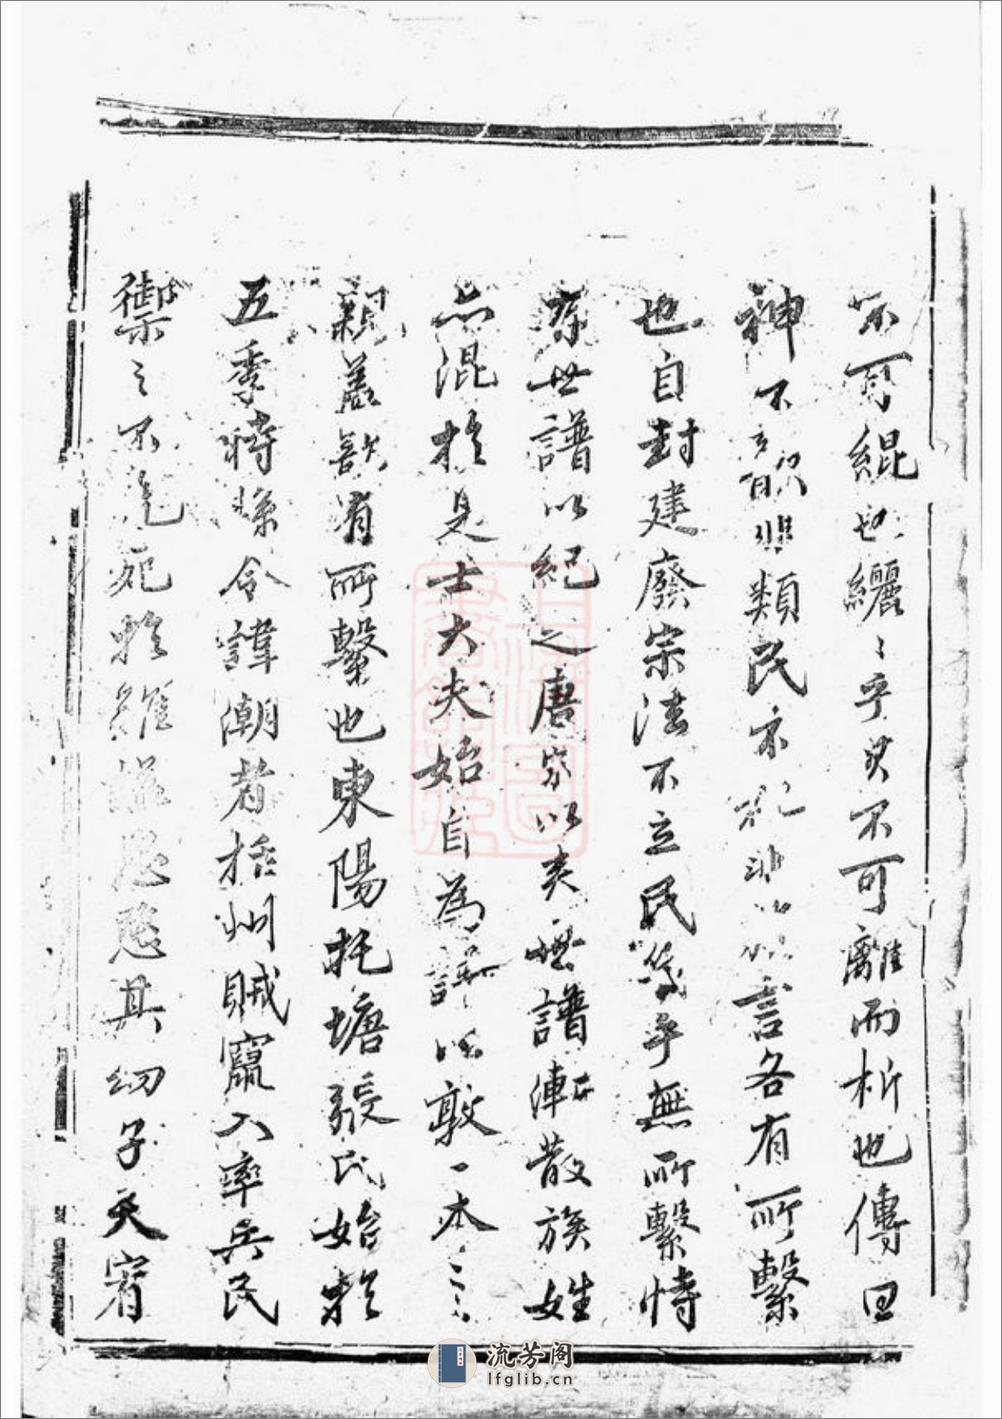 不可緄也纚〻乎其不可離而析也傳曰
神不歆非類民不祀非以言各有所繫
也自封建廢宗法不立民幾乎無所繫恃
世譜以紀之唐家以衰無譜漸散族姓
亦混於是士大夫始自為譜以敦一本之
親蓋欲有所繫也東陽托塘張氏始於
五季時縣令諱潮者括州賊竄入率兵民
禦之不克死於難謹其幼子天宥
流芳阁
lfglib.cn